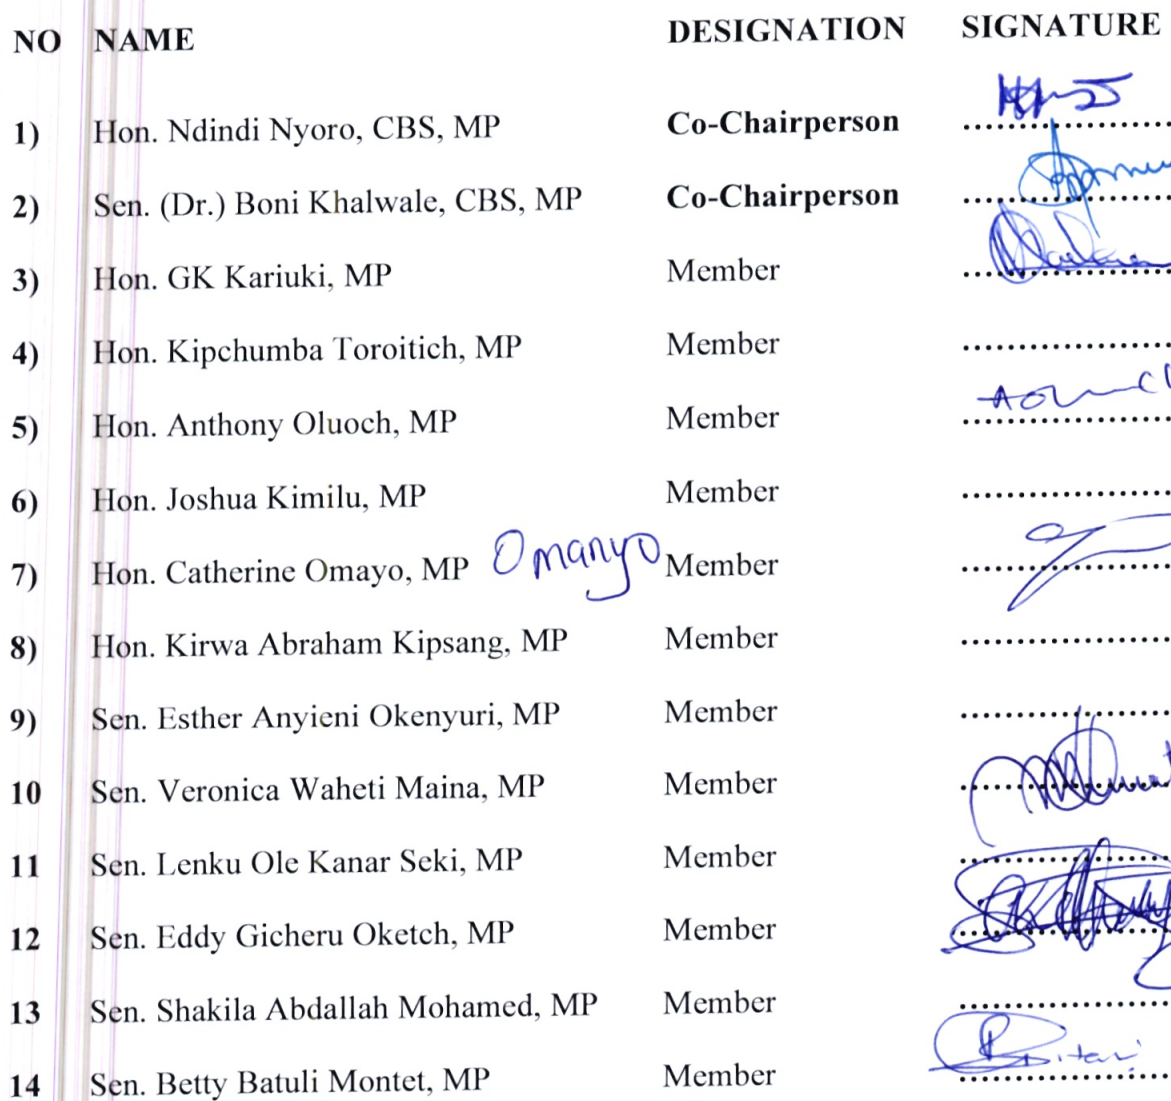 NO NAME DESIGNATION SIGNATURE
1) Hon. Ndindi Nyoro, CBS, MP Co-Chairperson ....................
2) Sen. (Dr.) Boni Khalwale, CBS, MP Co-Chairperson ....................
3) Hon. GK Kariuki, MP Member ....................
4) Hon. Kipchumba Toroitich, MP Member ....................
5) Hon. Anthony Oluoch, MP Member ....................
6) Hon. Joshua Kimilu, MP Member ....................
7) Hon. Catherine Omayo, MP Omanyo Member ....................
8) Hon. Kirwa Abraham Kipsang, MP Member ....................
9) Sen. Esther Anyieni Okenyuri, MP Member ....................
10 Sen. Veronica Waheti Maina, MP Member ....................
11 Sen. Lenku Ole Kanar Seki, MP Member ....................
12 Sen. Eddy Gicheru Oketch, MP Member ....................
13 Sen. Shakila Abdallah Mohamed, MP Member ....................
14 Sen. Betty Batuli Montet, MP Member ....................